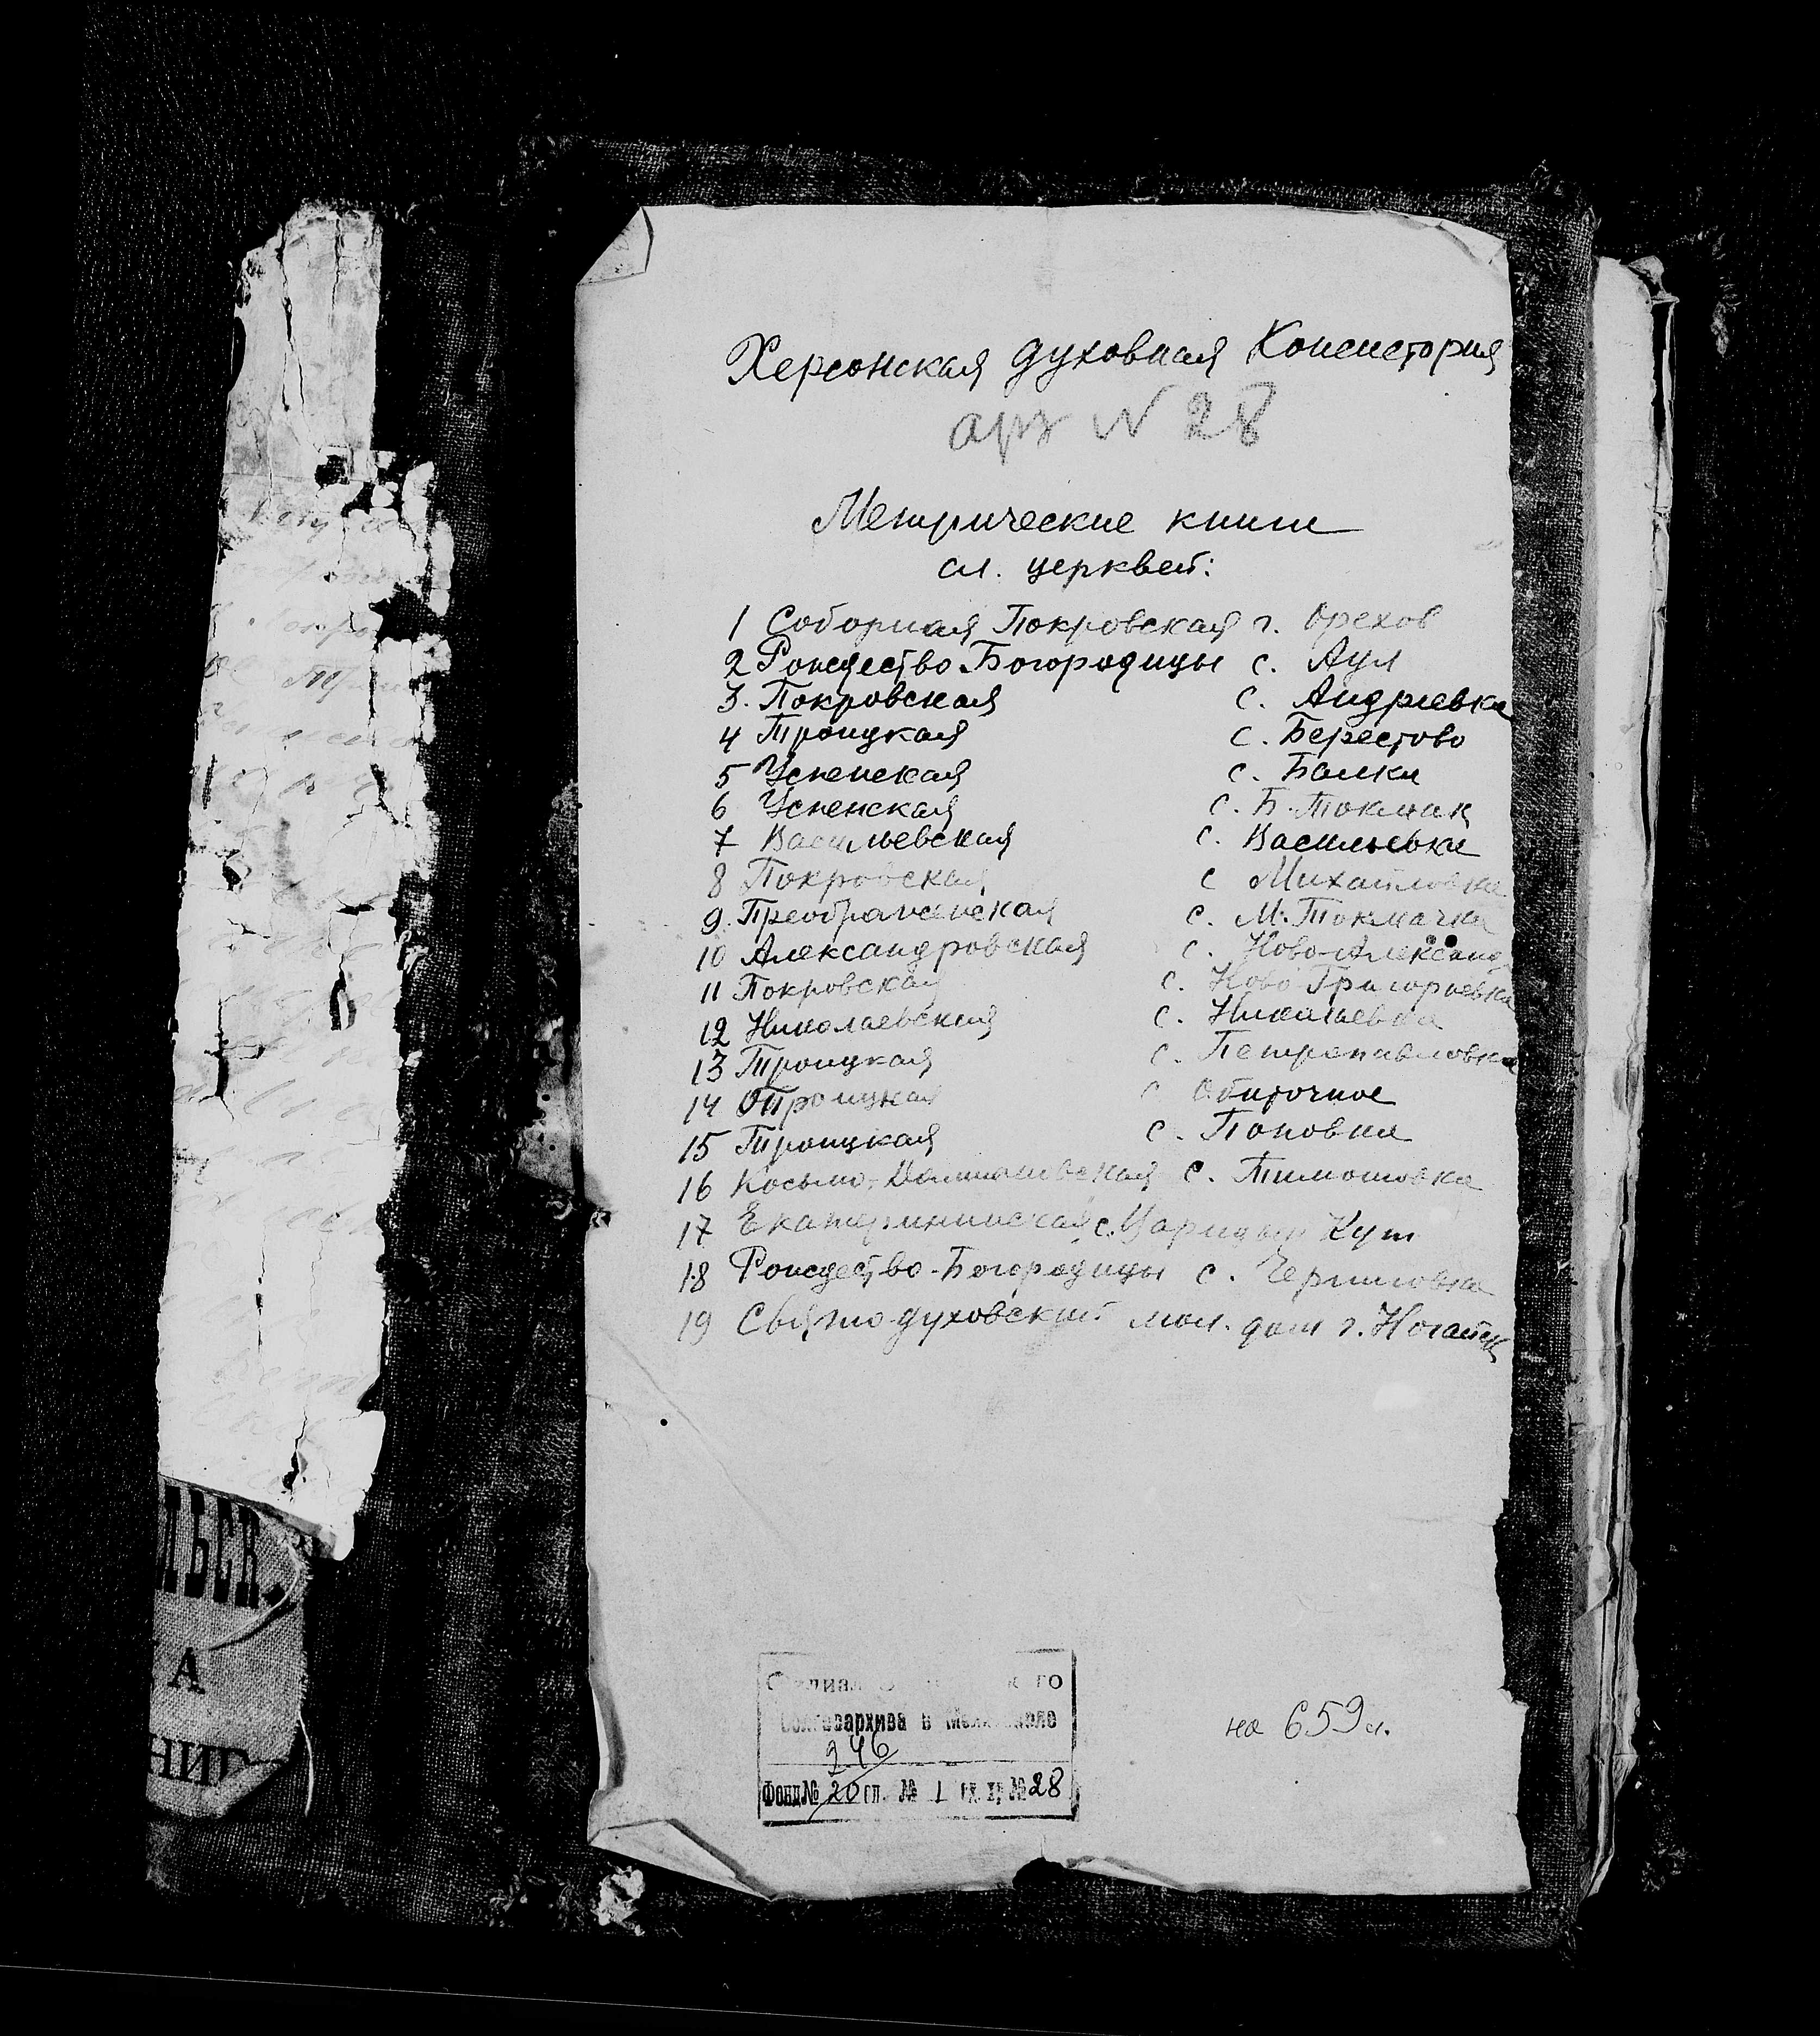 Херсонская духовная Консистория
арх N 28
Метрические книги
сл. церквей:
1 Соборная Покровская г. Орехов
2 Рождество-Богородицы с. Аул
3. Покровская с. Андриевка
4 Троицкая с. Берестово
5 Успенская с. Балки
6 Успенская с. Б. Токмак
7 Васильевская с. Васильевка
8 Покровская с Михайловка
9. Преображенская с. М. Токмачка
10 Александровская с. Ново-Александ
11 Покровская с. Ново Григорьевка
12 Николаевская с. Николаевка
13 Троицкая с. Петропавловка
14 Троицкая с Обиточное
15 Троицкая с. Поповка
16 Косьмо-Дамиановская с. Тимошовка
17 Екатерининская с. Царицын Кут
18 Рождество-Богородицы с. Черниговка
19 Святодуховский мол. дом г. Ногайск
на 659 л.
346
Фонд № 20 оп. № 1 ед. хр № 28
ЛЬСК.
А
НИГ